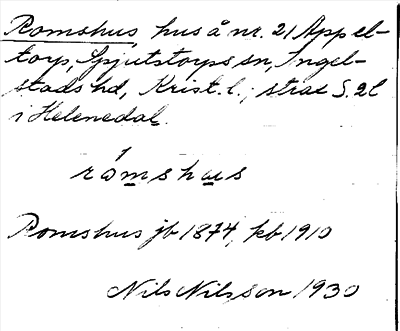 Romshus, hus å nr. 21 Appel-
torp, Gjutstorps sn, Ingel-
stads hd, Krist. l.; strax S. 
i Helenedal.
rómshus
Romshus jb 1874, kb 1910
Nils Nilsson 1930